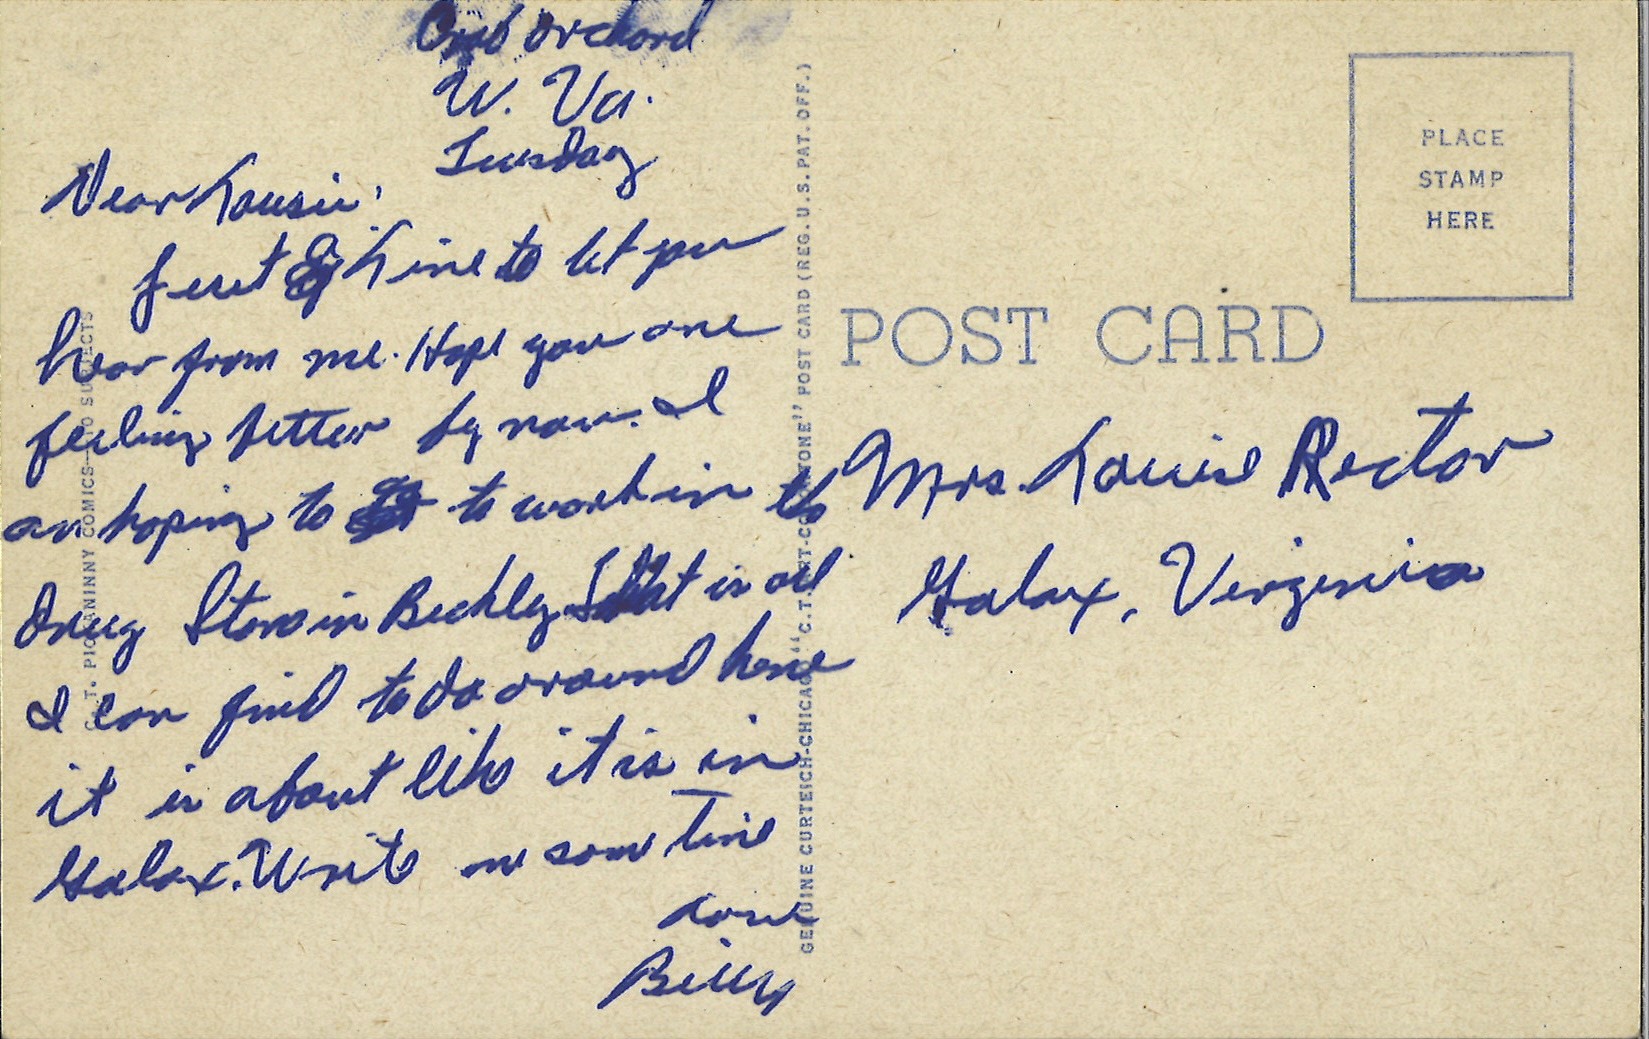 Crab Orchard
W. Va.
Tuesday
Dear Lousie:
Just a Line to let you
hear from me. Hope you are
feeling better by now. I
am hoping to to work in the
Drug Store in Beckley that is all
I can find to do around here
it is about like it is in
Galax. Write me some time
Love
Billy
C. T. PICKANINNY COMICS—10 SUBJECTS
GENUINE CURTEICH-CHICAGO "C.T. ART-COLORTONE" POST CARD (REG. U.S. PAT. OFF.)
PLACE
STAMP
HERE
POST CARD
Mrs. Louise Rector
Galax, Virginia